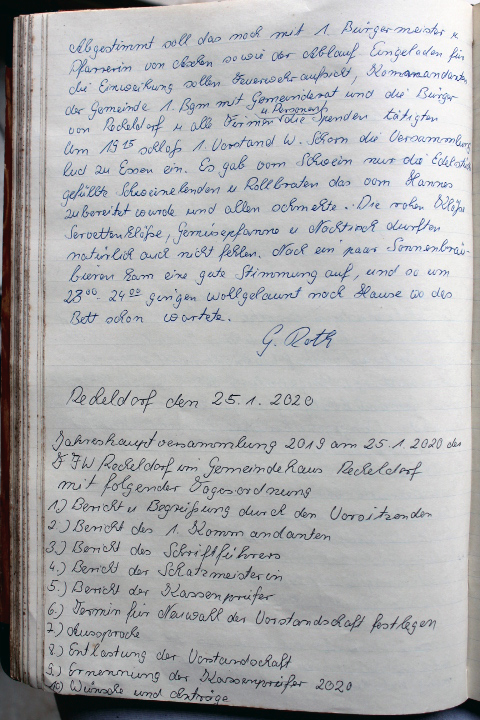 Abgestimmt soll das noch mit 1. Bürgermeister u.
Pfarrerin von Aschen sowie der Ablauf. Eingeladen für
die Einweihung sollen Feuerwehraufsicht, Komanandanten
der Gemeinde 1. Bgm mit Gemeinderat und die Bürger
von Reckeldorf u alle Firmen u Personen die Spenden tätigten
Um 19 15 schloß 1. Vorstand W. Schorn die Versammlung
lud zu Essen ein. Es gab vom Schwein nur die Edelstücke
gefüllte Schweinelenden u Rollbraten das vom Hannes
zubereitet wurde und allen schmekte. Die rohen Klöße
Servettenklöße, Gemüsepfanne u Nachtisch durften
natürlich auch nicht fehlen. Nach ein paar Sonnenbräu-
bieren kam eine gute Stimmung auf, und so um
23 00 - 24 00 gingen wohlgelaunt nach Hause wo das
Bett schon wartete.
G. Roth
Reckeldorf den 25.1.2020
Jahreshauptversammlung 2019 am 25.1.2020 der
FFW Reckeldorf im Gemeindehaus Reckeldorf
mit folgender Tagesordnung
1.) Bericht u Begrüßung durch den Vorsitzenden
2.) Bericht des 1. Kommandanten
3.) Bericht des Schriftführers
4.) Bericht der Schatzmeisterin
5.) Bericht der Kassenprüfer
6.) Termin für Neuwahl der Vorstandschaft festlegen
7.) Aussprache
8.) Entlastung der Vorstandschaft
9.) Ernennung der Kassenprüfer 2020
10) Wünsche und Anträge